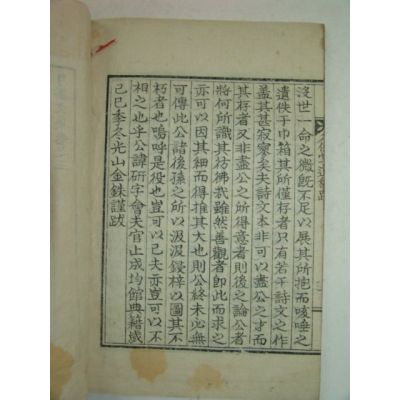 沒世一命之微旣不足以展其所抱而咳唾之
遺佚于巾箱其所僅存者只有若干詩文之作
盖其甚寂寥矣夫詩文本非可以盡公之才而
其存者又非盡公之所得意者則後之論公者
將何所識其彷彿哉雖然善觀者卽此而求之
亦可以因其細而得推其大也則公終未必無
可傳此公諱後孫之所以汲汲鋟梓以圖其不
朽者也嗚呼是役也豈可以已夫亦豈可以不
相之也乎公諱研字會夫官止成均館典籍或
己巳季冬光山金銖謹跋